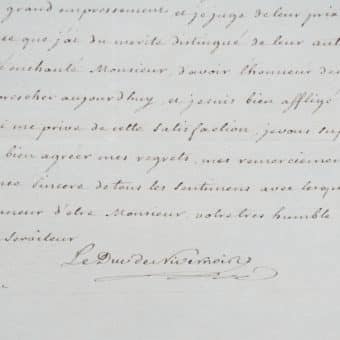 grand empressement et je juge de leur prix
ce que j'ai du merite distingué de leur aut
enchanté Monsieur, d'avoir l'honneur de
prescher aujourdhuy, et je suis bien affligé
me prive de cette satisfaction, je vous sup
bien agreer mes regrets, mes remerciemen
sincere de tous les sentimens avec lesqu
d'etre Monsieur, votre tres humble
Serviteur
Le Duc de Nivernois